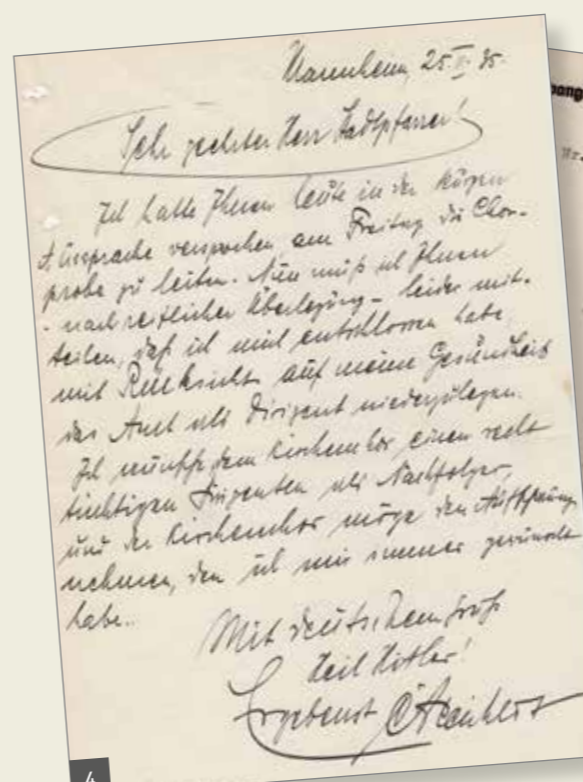 Mannheim, 25. 35.
Sehr geehrter Herr Stadtpfarrer!
Ich hatte Ihnen heute in der kurzen
Aussprache versprochen am Freitag die Chor-
probe zu leiten. Nun muß ich Ihnen
- nach reiflicher Überlegung - leider mit-
teilen, daß ich mich entschlossen habe,
mit Rücksicht auf meine Gesundheit
das Amt als Dirigent niederzulegen.
Ich wünsche dem Kirchenchor einen recht
tüchtigen Dirigenten als Nachfolger,
und der Kirchenchor möge den Aufschwung
nehmen, den ich mir immer gewünscht
habe.
Mit deutschem Gruß
Heil Hitler!
Ergebenst
4